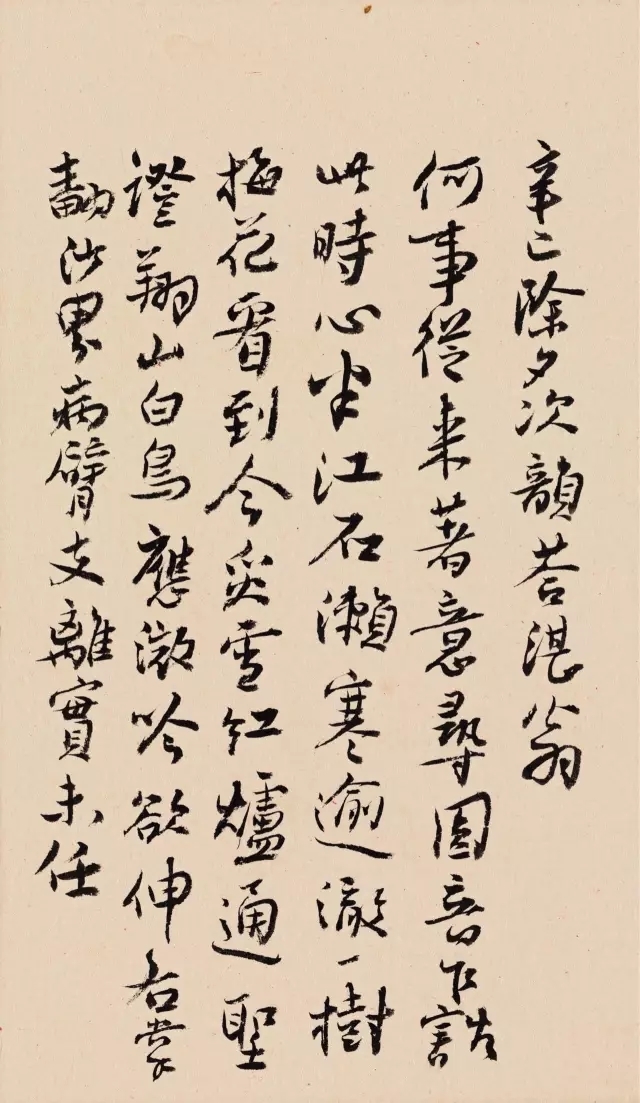 辛巳除夕次韻荅湛翁
何事從來著意尋圓音乍豁
此時心半江石瀨寒逾激一樹
梅花看到今奌雪紅爐通聖
證翔山白鳥應微吟欲伸右掌
翻沙界病臂支離實未任